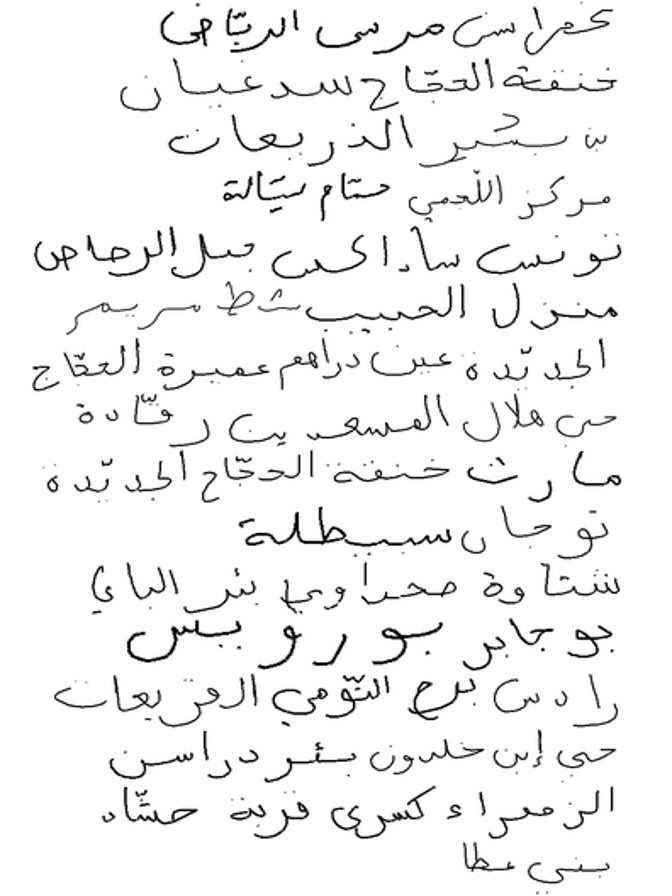 مرسى الريّاض
خنقة الحجّاج سدغيان
بن بشير الذريعات
مركز اللّجمي حمّام سيّالة
تونس جبل الرصاص
منزل الحبيب شط مريم
الجديّدة عين دراهم عميرة الحجّاج
حي هلال المسعدين رقّادة
مارث خنقة الحجّاج الجديّدة
توجان سبيطلة
شتاوة صحراوي بئر الباي
بوجابر بورويس
رادس برج التّومي القريعات
حي إبن خلدون بئر دراسن
الزهراء كسرى قرية حشّاد
بني عطا